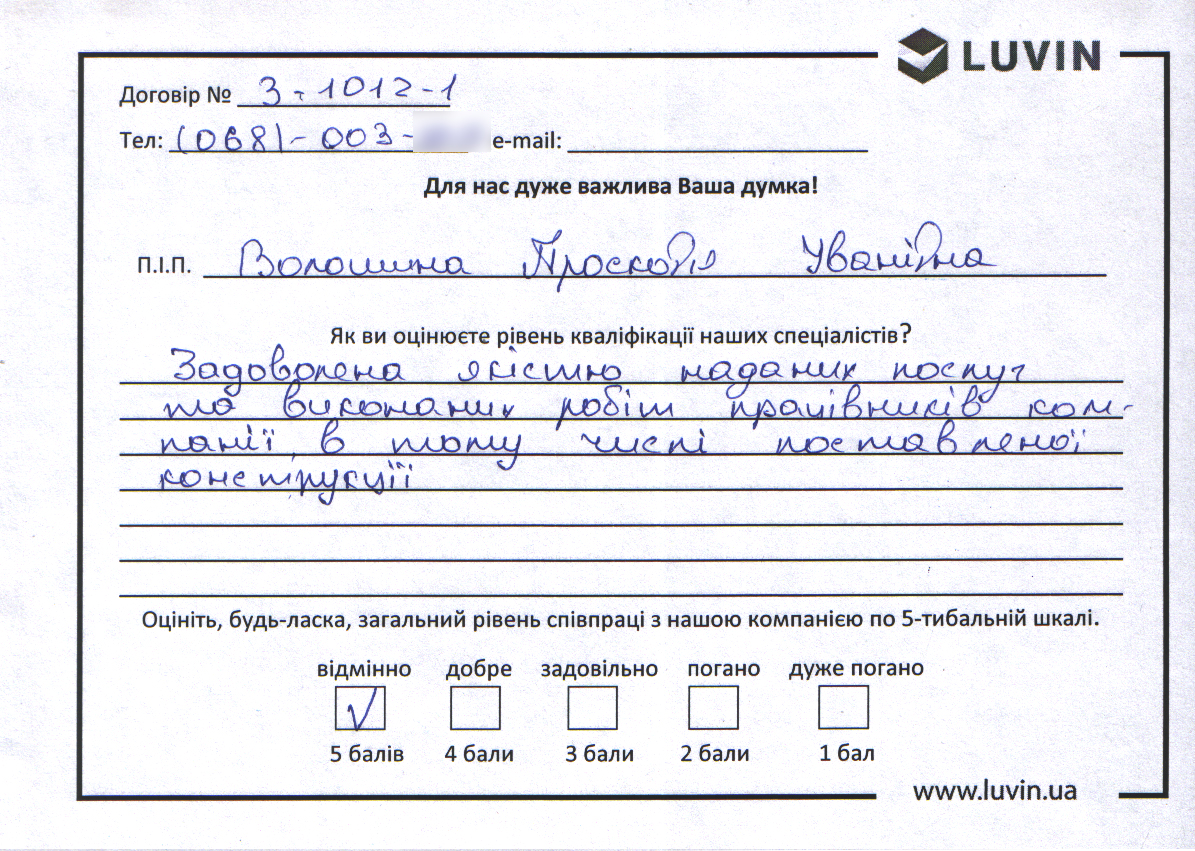 LUVIN
Договір № 3-1012-1
Тел: (068)-003- e-mail:
Для нас дуже важлива Ваша думка!
П.І.П. Волошина Просковія Уванівна
Як ви оцінюєте рівень кваліфікації наших спеціалістів?
Задоволена якістю наданих послуг
та виконаних робіт працівників ком-
панії, в тому числі поставленої
конструкції
Оцініть, будь-ласка, загальний рівень співпраці з нашою компанією по 5-тибальній шкалі.
відмінно добре задовільно погано дуже погано
5 балів 4 бали 3 бали 2 бали 1 бал
www.luvin.ua